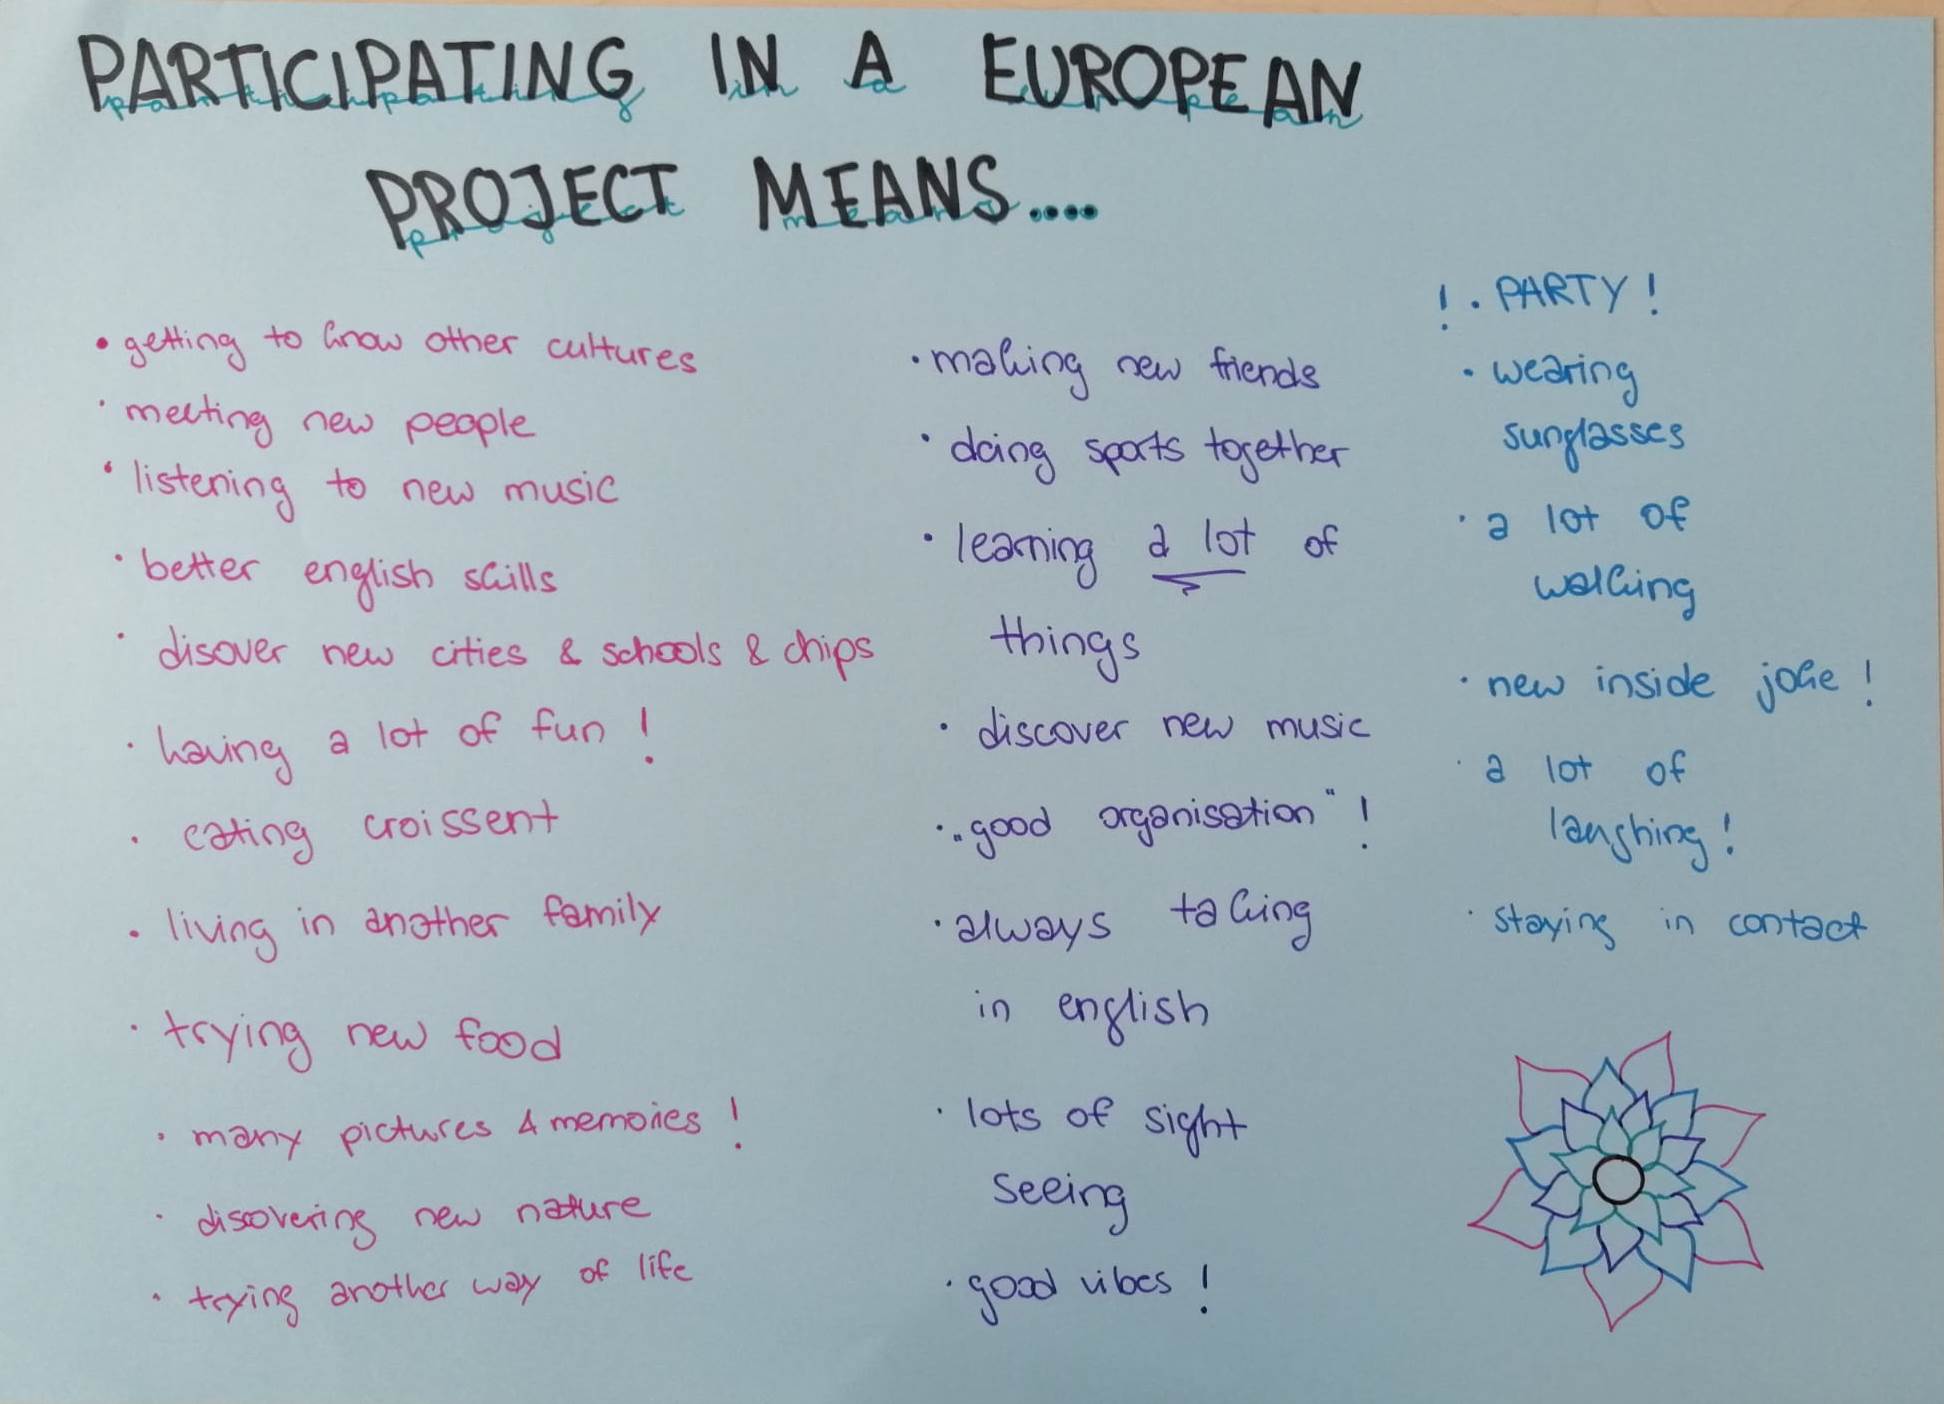 PARTICIPATING IN A EUROPEAN
participating in a european
PROJECT MEANS....
project means
• getting to know other cultures
• meeting new people
• listening to new music
• better english skills
• disover new cities & schools & chips
• having a lot of fun !
• eating croissent
• living in another family
• trying new food
• many pictures & memories !
• discovering new nature
• trying another way of life
• making new friends
• doing sports together
• learning a lot of
things
• discover new music
• „good organisation“ !
• always taking
in english
• lots of sight
seeing
• good vibes !
! • PARTY !
• wearing
sunglasses
• a lot of
walking
• new inside joke !
• a lot of
laughing !
• staying in contact